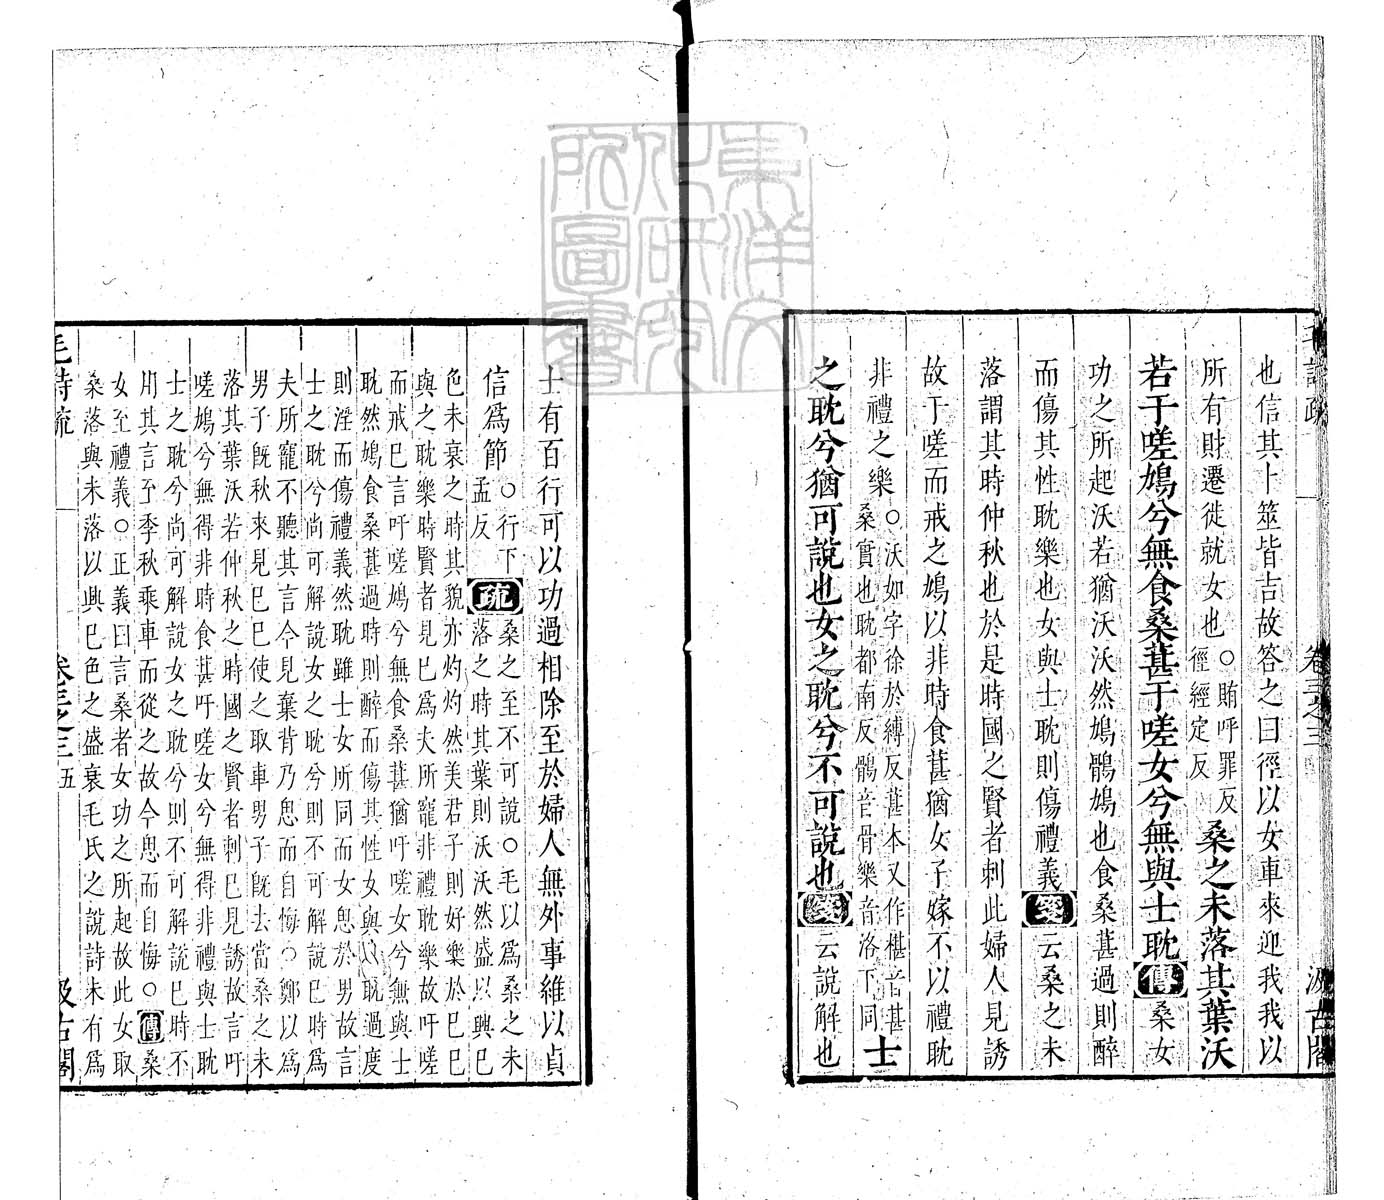 毛詩疏 卷三之三 汲古閣
也信其卜筮皆吉故答之曰徑以女車來迎我我以
所有財遷徙就女也○賄呼罪反徑經定反桑之未落其葉沃
若于嗟鳩兮無食桑葚于嗟女兮無與士耽傳桑女
功之所起沃若猶沃沃然鳩鶻鳩也食桑葚過則醉
而傷其性耽樂也女與士耽則傷禮義箋云桑之未
落謂其時仲秋也於是時國之賢者刺此婦人見誘
故于嗟而戒之鳩以非時食葚猶女子嫁不以禮耽
非禮之樂○沃如字徐於縛反葚本又作椹音甚桑實也耽都南反鶻音骨樂音洛下同士
之耽兮猶可說也女之耽兮不可說也箋云說解也
士有百行可以功過相除至於婦人無外事維以貞
信爲節○行下孟反疏桑之至不可說○毛以爲桑之未落之時其葉則沃沃然盛以興己
色未衰之時其貌亦灼灼然美君子則好樂於己己
與之耽樂時賢者見己爲夫所寵非禮耽樂故吁嗟
而戒己言吁嗟鳩兮無食桑葚猶吁嗟女兮無與士
耽然鳩食桑葚過時則醉而傷其性女與士耽過度
則淫而傷禮義然耽雖士女所同而女思於男故言
士之耽兮尚可解說女之耽兮則不可解說己時爲
夫所寵不聽其言今見棄背乃思而自悔○鄭以爲
男子既秋來見己己使之取車男子既去當桑之未
落其葉沃若仲秋之時國之賢者刺己見誘故言吁
嗟鳩兮無得非時食葚吁嗟女兮無得非禮與士耽
士之耽兮尚可解說女之耽兮則不可解說已時不
用其言至季秋乘車而從之故今思而自悔○傳桑
女至禮義○正義曰言桑者女功之所起故此女取
桑落與未落以興己色之盛衰毛氏之說詩未有爲
毛詩疏 卷三之三 五 汲古閣
東洋文化研究所圖書